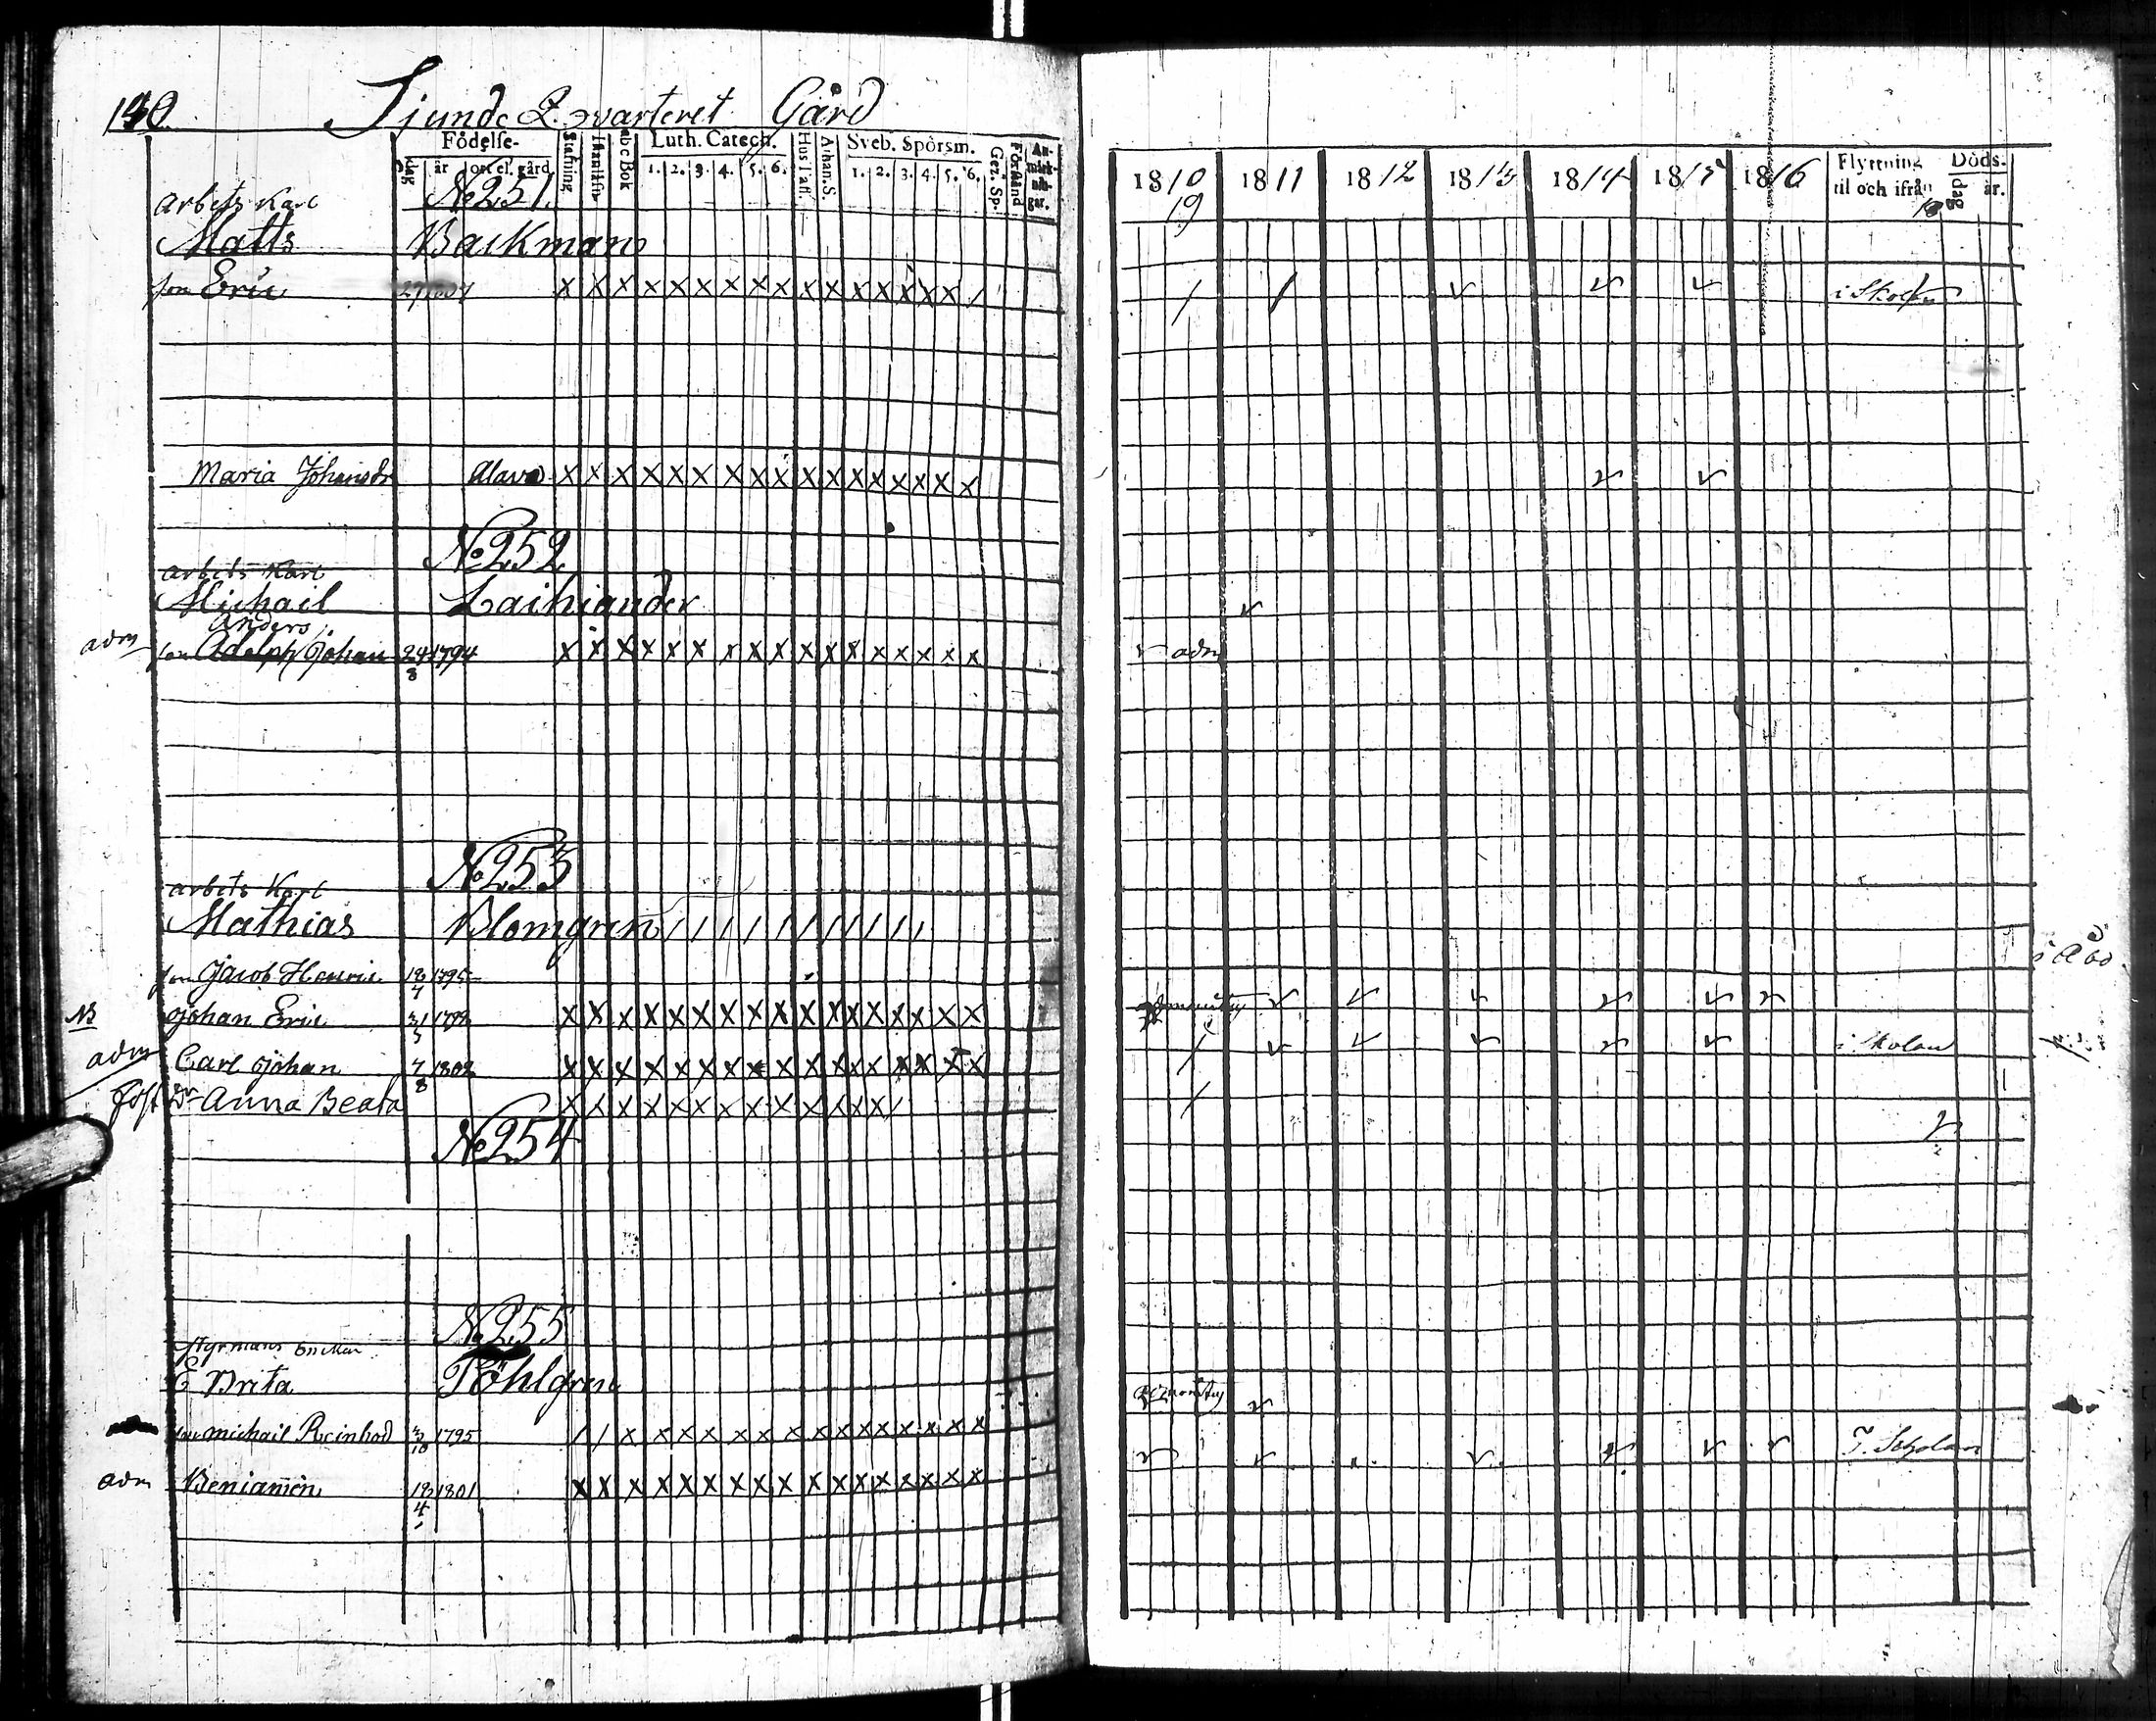 140
Sjunde Qvarteret Gård
Födelse-
Stafning
abc Bok
Luth. Catech.
Hus Tafl.
Athan. S.
Sveb. Spörsm.
Gez. Sp.
Förstånd
An-
märk-
nin-
gar.
dag år ort el. gård 1. 2. 3. 4. 5. 6. 1. 2. 3. 4. 5. 6.
1810 1811 1812 1813 1814 1815 1816 Flyttning Döds-
til och ifrån dag år.
19
arbets Karl No 251.
Matts Backman
son Eric i Skolan
Maria Johansdr Alavo
No 252
arbets Karl
Michail Laihiander
Anders
adm son Adolph Johan 24/8 1794 adm
No 253
arbets Karl
Mathias Blomgren
son Jacob Henric 1795 i Åbo
NB Johan Eric 1798
adm Carl Johan 7/8 1802 i Skolan
Anna Beata
No 254
No 255
Styrmans Enkan
E Brita Pöhlgren
son Michail Reinhod 3/10 1795
adm Beniamin 1801